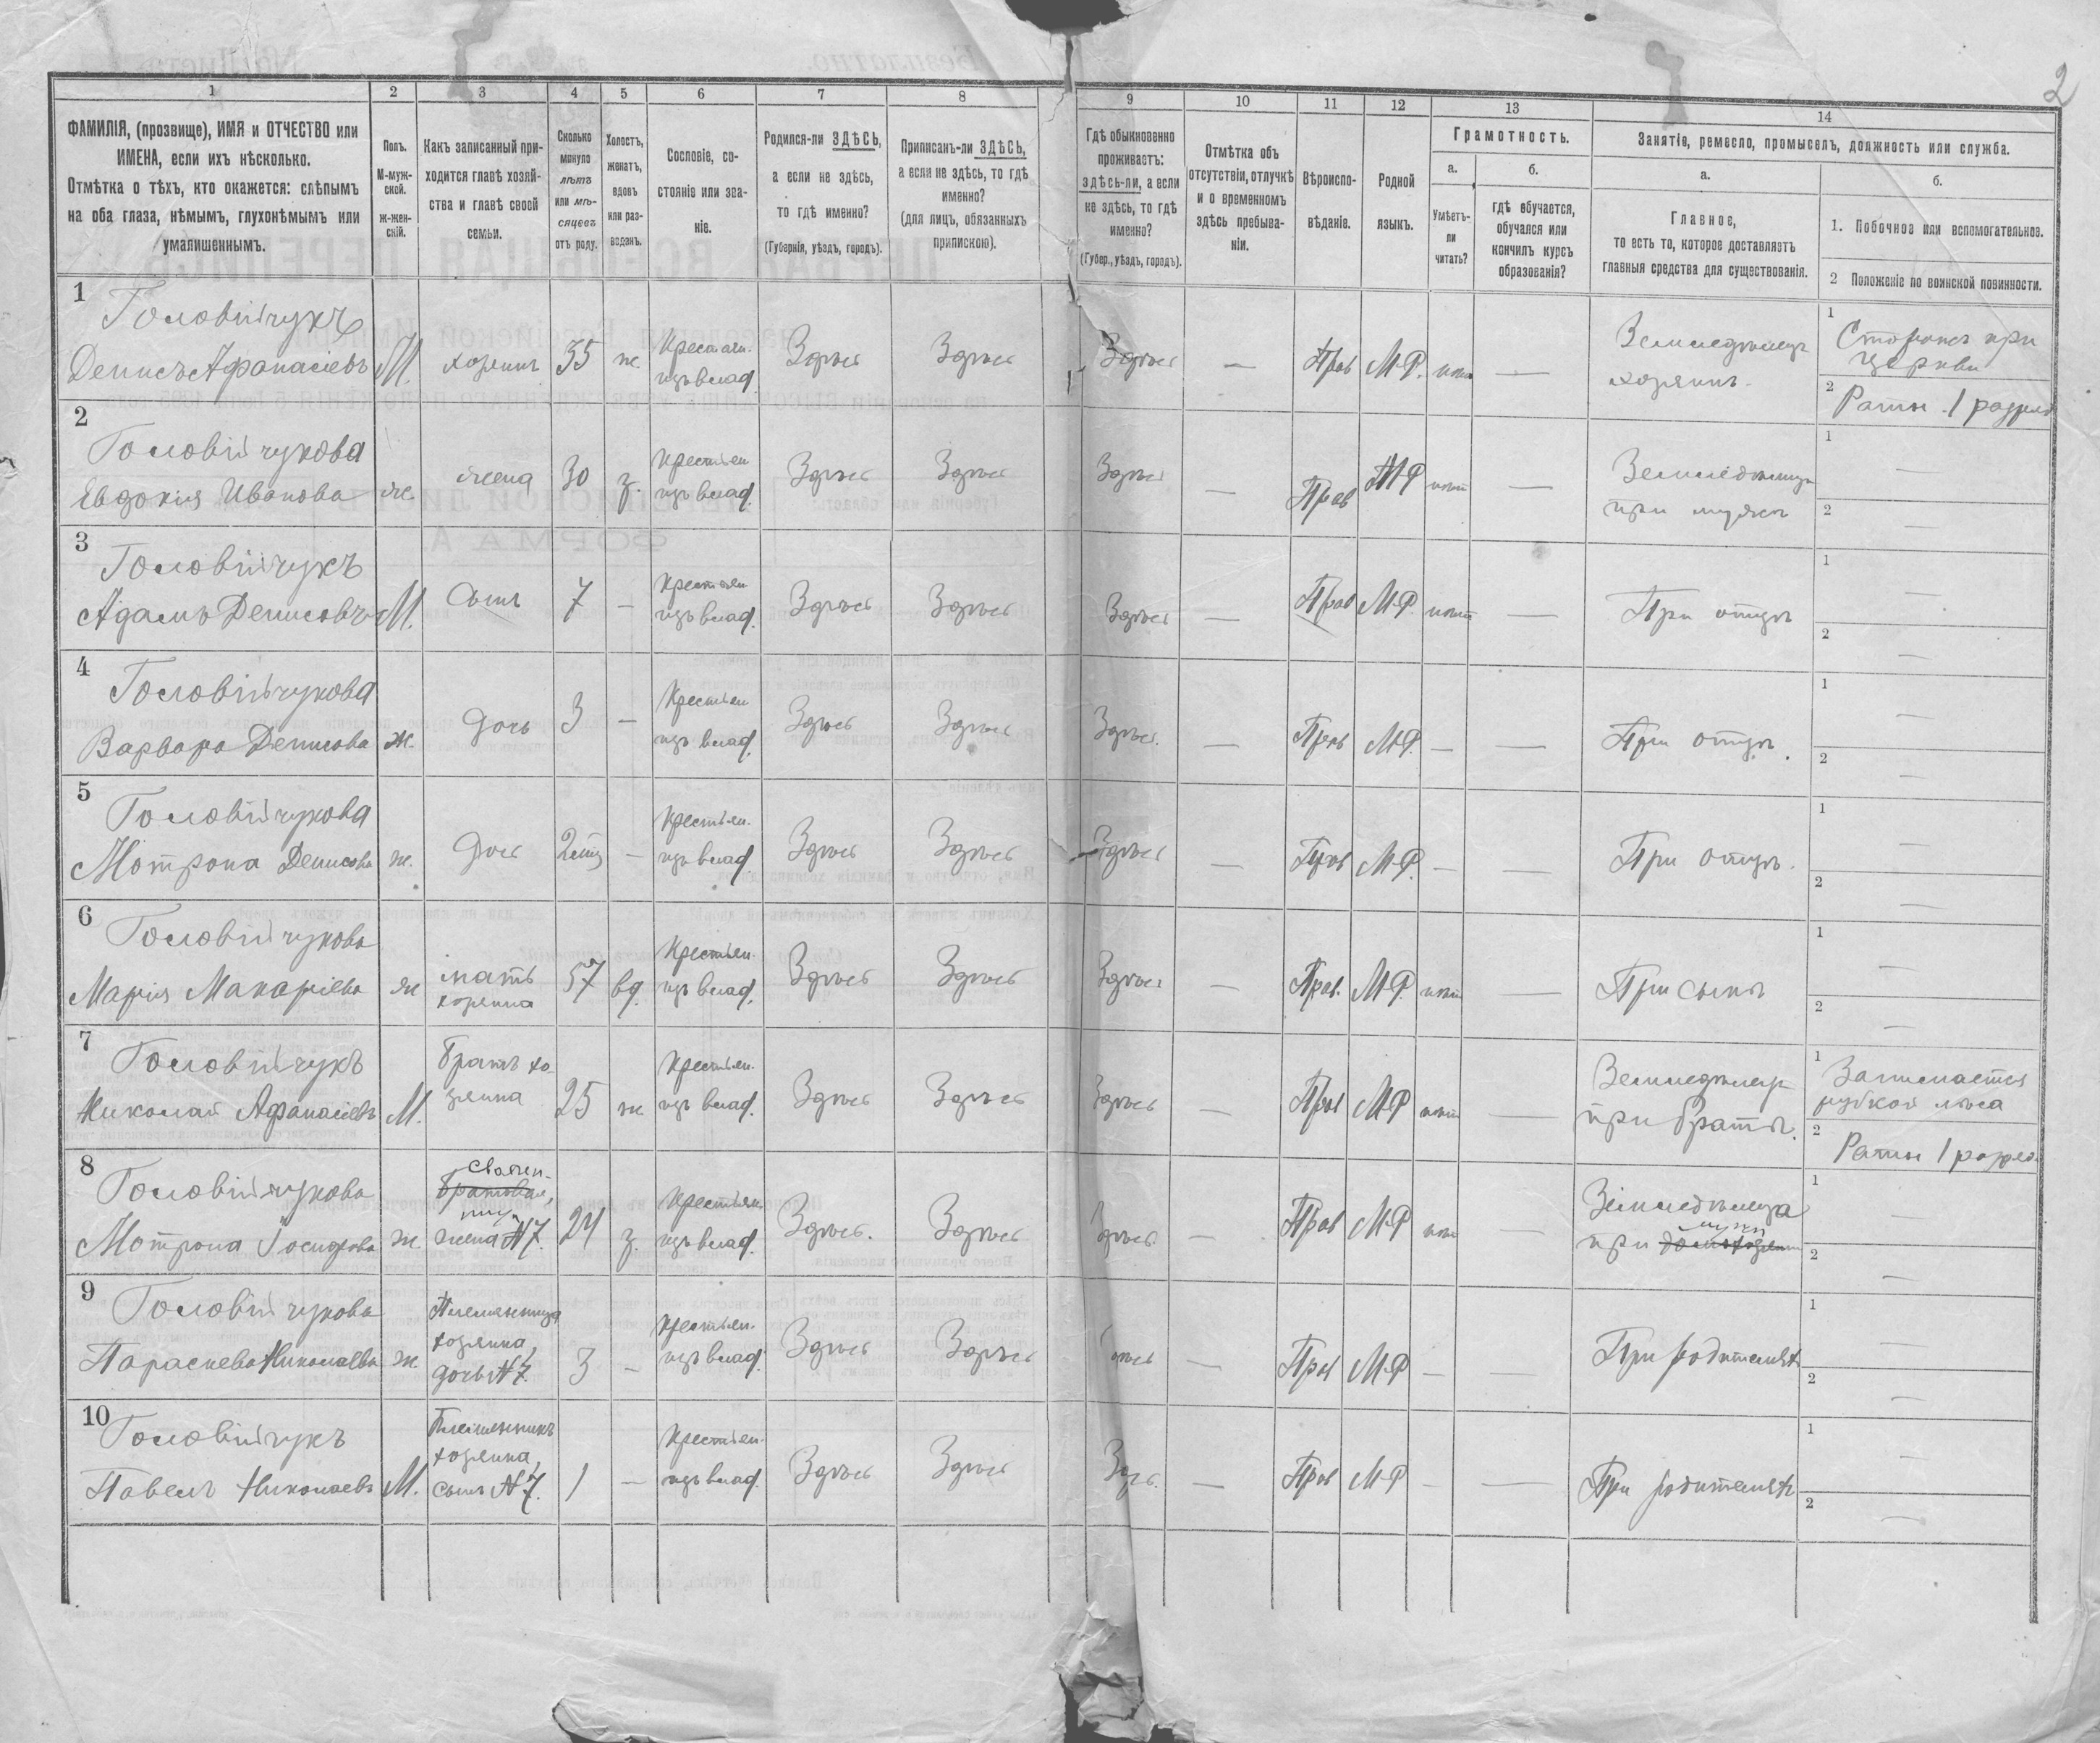 2
1 2 3 4 5 6 7 8 9 10 11 12 13 14
ФАМИЛІЯ, (прозвище), ИМЯ и ОТЧЕСТВО или
ИМЕНА, если ихъ нѣсколько.
Отмѣтка о тѣхъ, кто окажется: слѣпымъ
на оба глаза, нѣмымъ, глухонѣмымъ или
умалишеннымъ.
Полъ.
М-муж-
ской.
ж-жен-
скій.
Какъ записанный при-
ходится главѣ хозяй-
ства и главѣ своей
семьи.
Сколько
минуло
лѣтъ
или мѣ-
сяцевъ
отъ роду.
Холостъ,
женатъ,
вдовъ
или раз-
веденъ.
Сословіе, со-
стояніе или зва-
ніе.
Родился-ли ЗДѢСЬ,
а если не здѣсь,
то гдѣ именно?
(Губернія, уѣздъ, городъ).
Приписанъ-ли ЗДѢСЬ,
а если не здѣсь, то гдѣ
именно?
(для лицъ, обязанныхъ
припискою).
Гдѣ обыкновенно
проживаетъ:
здѣсь-ли, а если
не здѣсь, то гдѣ
именно?
(Губер., уѣздъ, городъ).
Отмѣтка объ
отсутствіи, отлучкѣ
и о временномъ
здѣсь пребыва-
ніи.
Вѣроиспо-
вѣданіе.
Родной
языкъ.
Грамотность.
а.
Умѣетъ-
ли
читать?
б.
гдѣ обучается,
обучался или
кончилъ курсъ
образованія?
Занятіе, ремесло, промыселъ, должность или служба.
а.
Главное,
то есть то, которое доставляетъ
главныя средства для существованія.
б.
1. Побочное или вспомогательное.
2 Положеніе по воинской повинности.
1
Головійчукъ
Денисъ Афанасіевъ М. хозяинъ 35 ж. Крестьян.
изъ влад. Здѣсь Здѣсь Здѣсь — Прав М-Р. нѣтъ —
Земледѣлецъ
хозяинъ
1 Сторожъ при
церкви
2 Ратн. 1 разряд
2
Головійчукова
Евдокія Иванова ж. жена 30 з. Крестьян
изъ влад. Здѣсь Здѣсь Здѣсь — Прав М-Р нѣтъ —
Земледѣлица
при мужѣ
1 —
2 —
3
Головійчукъ
Адамъ Денисовъ М. Сынъ 7 — Крестьян
изъ влад. Здѣсь Здѣсь Здѣсь — Прав М-Р. нѣтъ —
При отцѣ
1 —
2 —
4
Головійчукова
Варвара Денисова ж. Дочь 3 — Крестьян
изъ влад. Здѣсь Здѣсь Здѣсь. — Прав М-Р. — —
При отцѣ.
1 —
2 —
5
Головійчукова
Мотрона Денисова ж. Дочь — Крестьян.
изъ влад Здѣсь Здѣсь Здѣсь — Прав М-Р. — —
При отцѣ.
1 —
2 —
6
Головійчукова
Марія Макаріева ж мать
хозяина 57 вд. Крестьян.
изъ влад. Здѣсь Здѣсь Здѣсь — Прав. М-Р. нѣтъ —
При сынѣ
1 —
2 —
7
Головійчукъ
Николай Афанасіевъ М. Братъ хо-
зяина 25 ж Крестьян.
изъ влад. Здѣсь Здѣсь Здѣсь — Прав М-Р нѣтъ —
Земледѣлецъ
при братѣ.
1 Занимается
рубкой лѣса
2 Ратн 1 разряд.
8
Головійчукова
Мотрона Іосифова ж.
жена N7. 24 з. Крестьян
изъ влад. Здѣсь. Здѣсь — Прав М-Р нѣтъ —
Земледѣлица
при мужѣ
1 —
2 —
9
Головійчукова
Параскева Николаева ж Племянница
хозяина,
дочь N7. 3 — Крестьян.
изъ влад. Здѣсь Здѣсь — Прав М-Р — —
При родителяхъ
1 —
2 —
10
Головійчукъ
Павелъ Николаевъ М. Племянникъ
хозяина,
сынъ N7. 1 — Крестьян.
изъ влад. Здѣсь Здѣсь — Прав М-Р — —
При родителяхъ
1
2 —